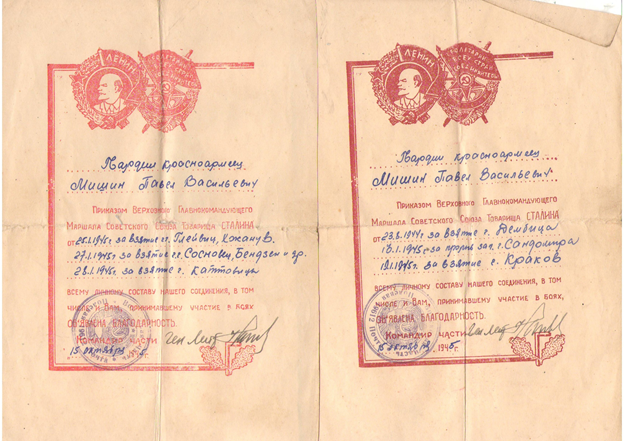 ЛЕНИН
Гвардии красноармеец
Мишин Павел Васильевич
Приказом Верховного Главнокомандующего
Маршала Советского Союза Товарища СТАЛИНА
от 25.1.1945г. за взятие гг. Глейвиц, Хжанув.
27.1.1945г. за взятие гг. Сосновц, Бендзен и др.
28.1.1945г. за взятие г. Каттовице
всему личному составу нашего соединения, в том
числе и Вам, принимавшему участие в боях,
объявлена благодарность.
Командир части
15 октября
ЛЕНИН
ПРОЛЕТАРИИ ВСЕХ СТРАН СОЕДИНЯЙТЕСЬ
Гвардии красноармеец
Мишин Павел Васильевич
Приказом Верховного Главнокомандующего
Маршала Советского Союза Товарища СТАЛИНА
от 23.8.1944г. за взятие г. Дембица
13.1.1945г. за прорыв зап. г. Сандомира
19.1.1945г. за взятие г. Краков
всему личному составу нашего соединения, в том
числе и Вам, принимавшему участие в боях,
объявлена благодарность.
Командир части
15 октября 1945г.